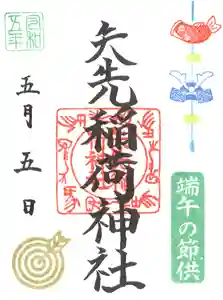 令和
五年
矢先稲荷神社
五月五日
端午の節供